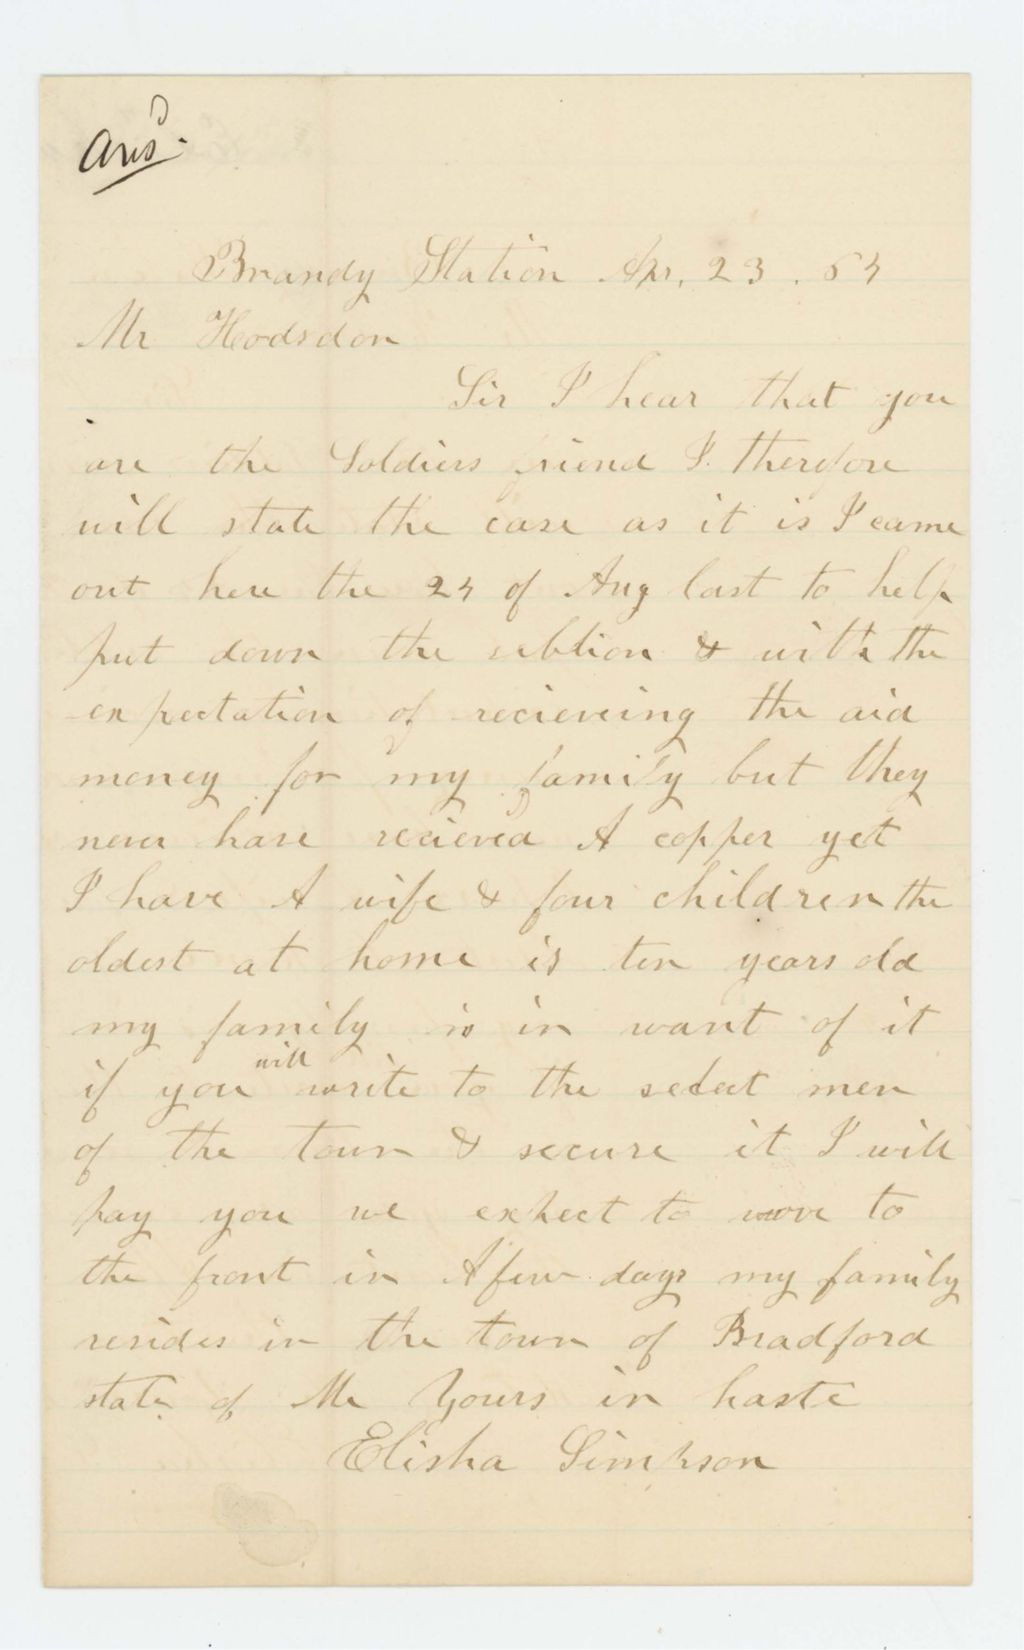 Ansd.
Brandy Station Apr. 23. 64
Mr Hodsdon
Sir I hear that you
are the Soldiers friend I. therefore
will state the case as it is I came
out here the 24 of Aug last to help
put down the reblion & with the
expectation of recieveing the aid
money for my family but they
never have recieved A copper yet
I have A wife & four children the
oldest at home is ten years old
my family is in want of it
if you will write to the select men
of the town & secure it I will
pay you we expect to move to
the front in A few days my family
resides in the town of Bradford
state of Me Yours in haste
Elisha Simpson